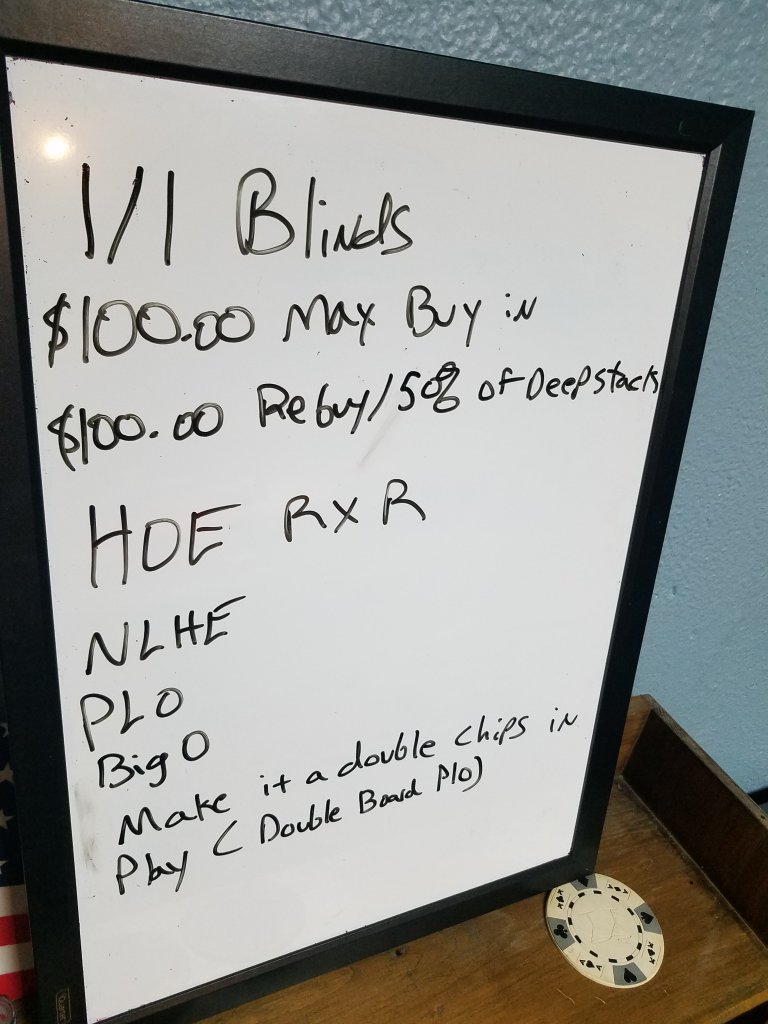 1/1 Blinds
$100.00 Max Buy in
$100.00 Rebuy/50% of Deepstack
HOE RXR
NLHE
PLO
Big O
Make it a double chips in
Play (Double Board Plo)